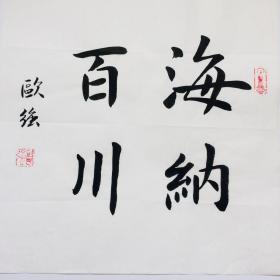 海納
百川
歐強